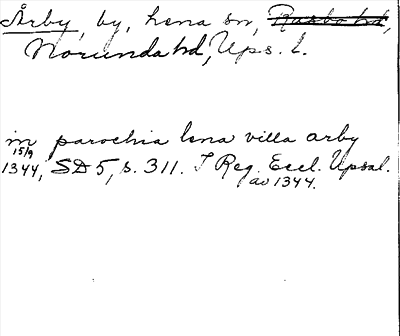 Årby, by, Lena sn, Rasbo hd,
Norunda hd, Ups. l.
in parochia lena villa arby
15/9
1344, SD 5, s. 311. I Reg. Eccl. Upsal.
av 1344.